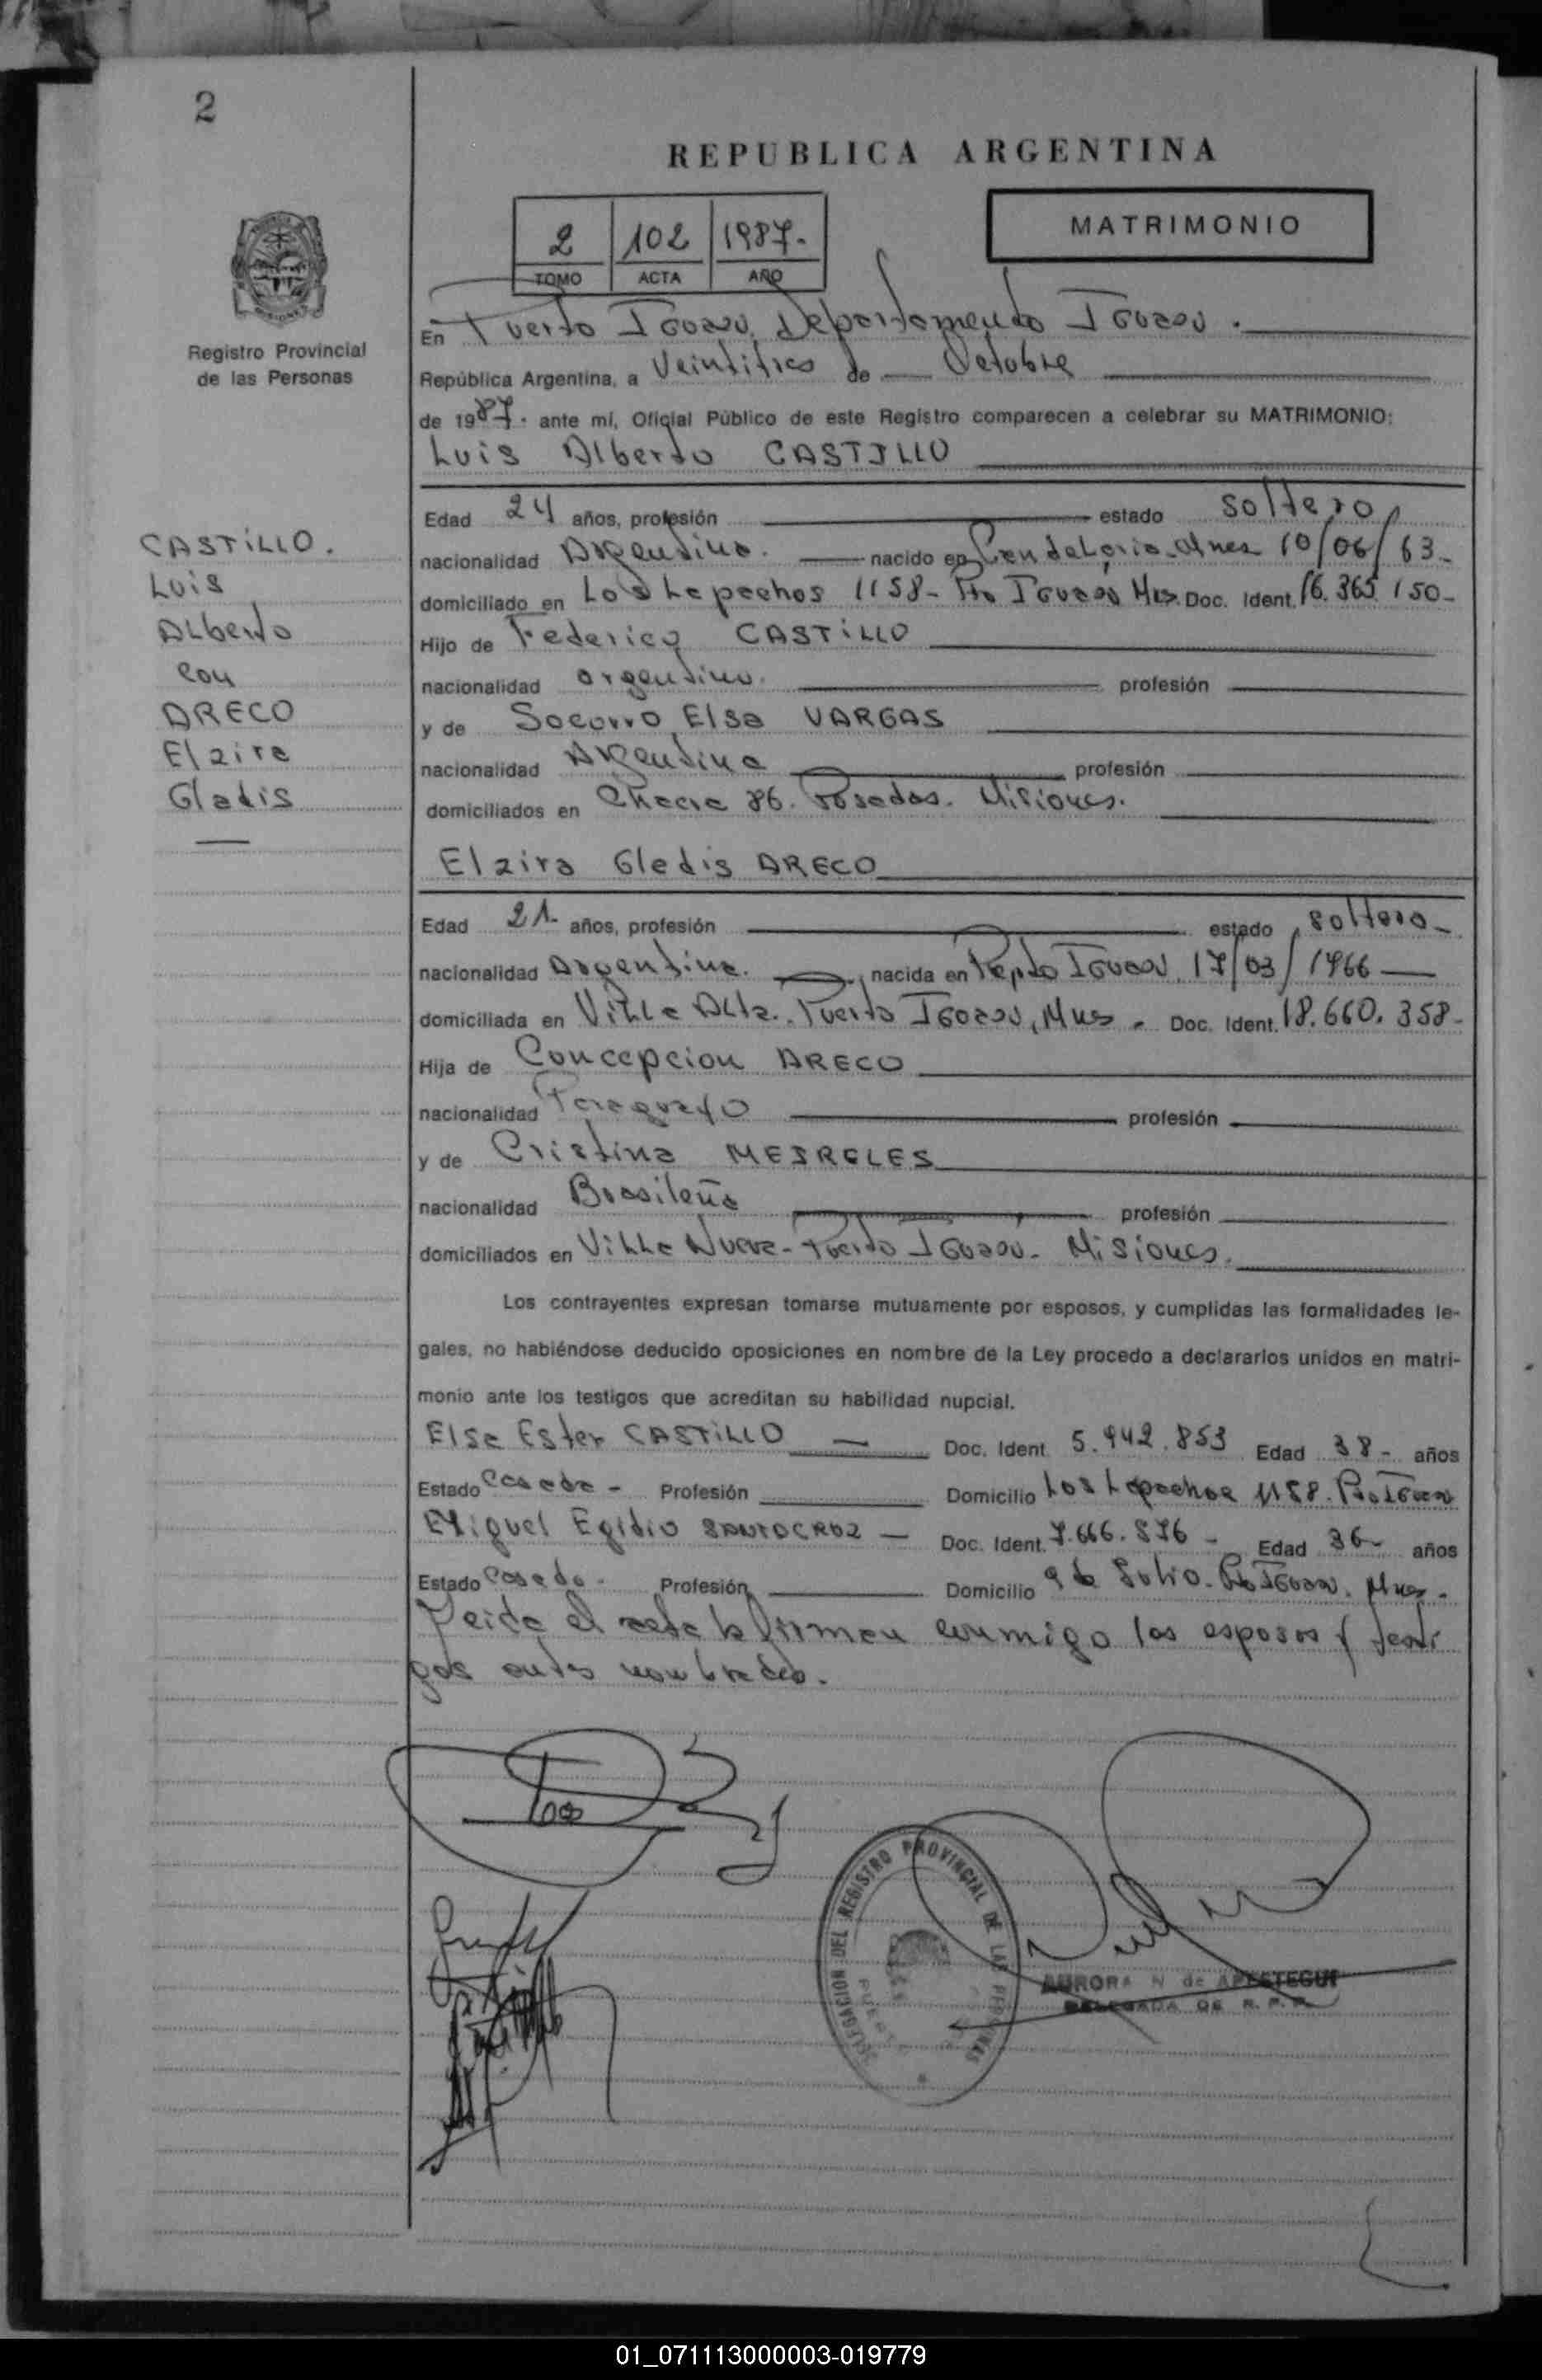 2
REPUBLICA ARGENTINA
2 102 1987.
TOMO ACTA AÑO
MATRIMONIO
Registro Provincial
de las Personas
En Puerto Iguazú, Departamento Iguazú.
República Argentina, a Veintitres de Octubre
de 1987. ante mí, Oficial Público de este Registro comparecen a celebrar su MATRIMONIO:
Luis Alberto CASTILLO
Edad 24 años, profesión estado soltero
CASTILLO.
Luis
Alberto
con
ARECO
Elzira
Gladis
nacionalidad Argentino. nacido en Candelaria. Mnes 10/06/63-
domiciliado en Los Lapachos 1158- Pto Iguazú Mns. Doc. Ident. 16.365.150-
Hijo de Federico CASTILLO
nacionalidad argentino. profesión
y de Socorro Elsa VARGAS
nacionalidad Argentina profesión
domiciliados en Chacra 86. Posadas. Misiones.
Elzira Gladis ARECO
Edad 21. años, profesión estado soltera-
nacionalidad Argentina. nacida en Iguazú, 17/03/1966
domiciliada en Villa Alta. Puerto Iguazú, Mns. Doc. Ident. 18.660.358-
Hija de Concepcion ARECO
nacionalidad Paraguayo profesión
y de Cristina MEIRELES
nacionalidad Brasileña profesión
domiciliados en Villa Nueva- Puerto Iguazú- Misiones.
Los contrayentes expresan tomarse mutuamente por esposos, y cumplidas las formalidades le-
gales, no habiéndose deducido oposiciones en nombre de la Ley procedo a declararlos unidos en matri-
monio ante los testigos que acreditan su habilidad nupcial.
Elsa Ester CASTILLO Doc. Ident. 5.942.853 Edad 38- años
Estado Casada- Profesión Domicilio Los Lapachos 1158. Pto Iguazú
Miguel Egidio SANTOCRUZ - Doc. Ident. 7.666.876- Edad 36- años
Estado Casado. Profesión Domicilio 9 de Julio. Pto Iguazú. Mnes.
Leida el acta la firman conmigo los esposos y testi
gos antes nombrados.
DELEGACION DEL REGISTRO PROVINCIAL DE LAS PERSONAS
AURORA N de
DELEGADA DE R. P. P.
01_071113000003-019779